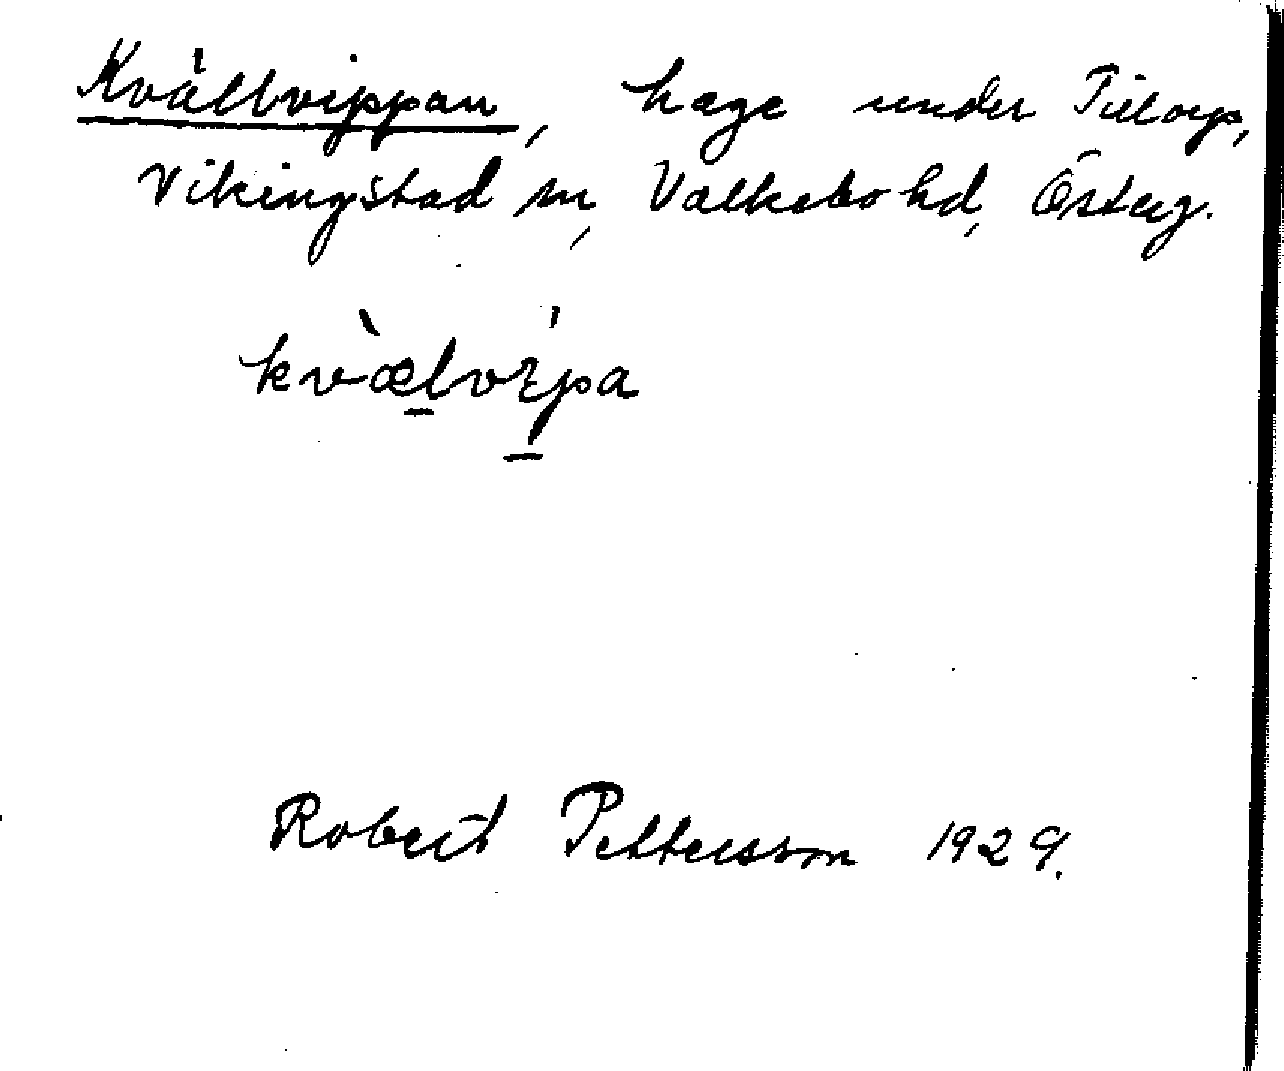 Kvällvippan, hage under Tittorp,
Vikingstad sn, Valkebo hd, Österg.
kvælvipa
Robert Pettersson 1929.